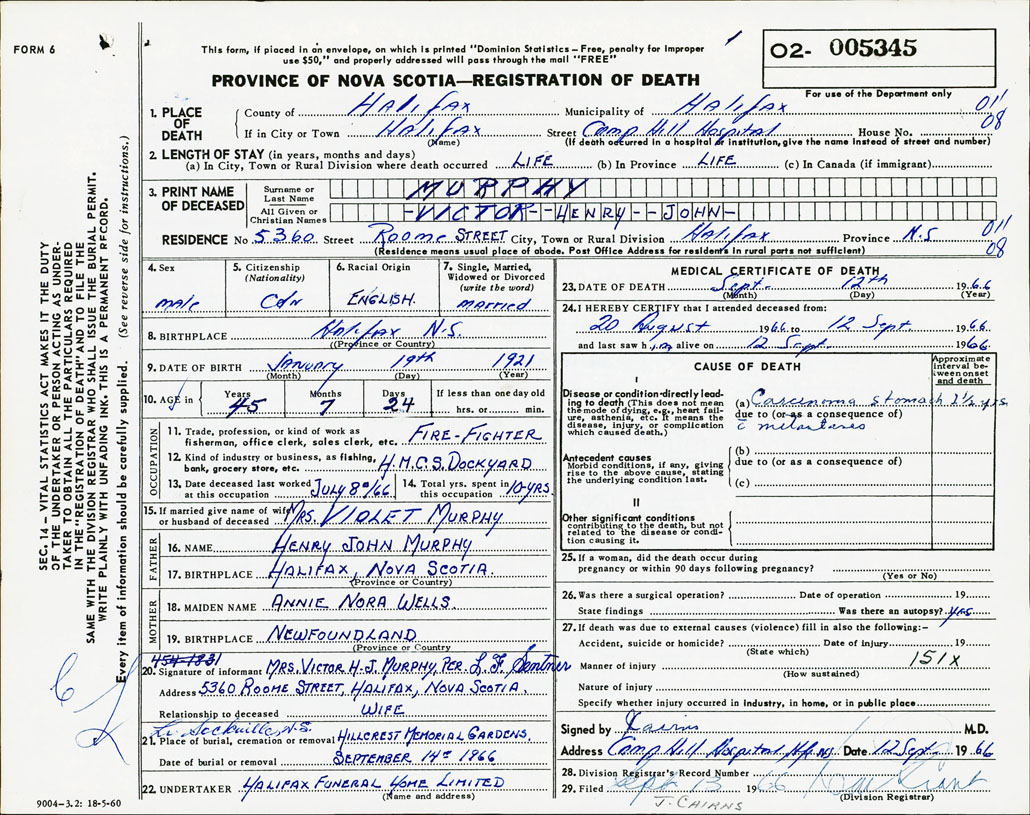 FORM 6
This form, if placed in an envelope, on which is printed "Dominion Statistics – Free, penalty for improper
use $50," and properly addressed will pass through the mail "FREE"
PROVINCE OF NOVA SCOTIA—REGISTRATION OF DEATH
O2- 005345
For use of the Department only
SEC. 14 – VITAL STATISTICS ACT MAKES IT THE DUTY
OF THE UNDERTAKER OR PERSON ACTING AS UNDER-
TAKER TO OBTAIN ALL THE PARTICULARS REQUIRED
IN THE "REGISTRATION OF DEATH" AND TO FILE THE
SAME WITH THE DIVISION REGISTRAR WHO SHALL ISSUE THE BURIAL PERMIT.
WRITE PLAINLY WITH UNFADING INK. THIS IS A PERMANENT RECORD.
Every item of information should be carefully supplied. (See reverse side for instructions.)
1. PLACE OF DEATH
County of Halifax Municipality of Halifax 011
If in City or Town Halifax Street Camp Hill Hospital House No. 08
(Name) (If death occurred in a hospital or institution, give the name instead of street and number)
2. LENGTH OF STAY (in years, months and days)
(a) In City, Town or Rural Division where death occurred LIFE (b) In Province LIFE (c) In Canada (if immigrant)
3. PRINT NAME OF DECEASED
Surname or Last Name MURPHY
All Given or Christian Names -VICTOR--HENRY--JOHN-
RESIDENCE No 5360 Street Roome STREET City, Town or Rural Division Halifax Province N.S 011
(Residence means usual place of abode. Post Office Address for residents in rural parts not sufficient) 08
4. Sex male
5. Citizenship (Nationality) Cdn
6. Racial Origin ENGLISH.
7. Single, Married, Widowed or Divorced (write the word) married
8. BIRTHPLACE Halifax N.S.
(Province or Country)
9. DATE OF BIRTH January 19th 1921
(Month) (Day) (Year)
10. AGE in Years 45 Months 7 Days 24 If less than one day old hrs. or min.
OCCUPATION
11. Trade, profession, or kind of work as
fisherman, office clerk, sales clerk, etc. FIRE-FIGHTER
12. Kind of industry or business, as fishing,
bank, grocery store, etc. H.M.C.S. DOCKYARD
13. Date deceased last worked at this occupation JULY 8th/66 14. Total yrs. spent in this occupation 10-YRS.
15. If married give name of wife
or husband of deceased MRS. VIOLET MURPHY
FATHER
16. NAME HENRY JOHN MURPHY
17. BIRTHPLACE HALIFAX, NOVA SCOTIA.
(Province or Country)
MOTHER
18. MAIDEN NAME ANNIE NORA WELLS.
19. BIRTHPLACE NEWFOUNDLAND
(Province or Country)
454-1831
20. Signature of informant MRS. VICTOR H-J. MURPHY, PER. L. F. Sentner
Address 5360 ROOME STREET, HALIFAX, NOVA SCOTIA.
Relationship to deceased WIFE
Sackville, N.S.
21. Place of burial, cremation or removal HILLCREST MEMORIAL GARDENS.
Date of burial or removal SEPTEMBER 14th 1966
22. UNDERTAKER HALIFAX FUNERAL HOME LIMITED
(Name and address)
9004-3.2: 18-5-60
MEDICAL CERTIFICATE OF DEATH
23. DATE OF DEATH Sept. 12th 1966
(Month) (Day) (Year)
24. I HEREBY CERTIFY that I attended deceased from:
20 August 1966 to 12 Sept 1966
and last saw him alive on 12 Sept. 1966
CAUSE OF DEATH
Approximate interval between onset and death
I
Disease or condition directly lead-
ing to death (This does not mean
the mode of dying, e.g., heart fail-
ure, asthenia, etc. It means the
disease, injury, or complication
which caused death.)
(a) Carcinoma stomach 1½ yrs.
due to (or as a consequence of)
c̄ metastases
Antecedent causes
Morbid conditions, if any, giving
rise to the above cause, stating
the underlying condition last.
(b)
due to (or as a consequence of)
(c)
II
Other significant conditions
contributing to the death, but not
related to the disease or condi-
tion causing it.
25. If a woman, did the death occur during
pregnancy or within 90 days following pregnancy?
(Yes or No)
26. Was there a surgical operation? Date of operation 19
State findings Was there an autopsy? yes
27. If death was due to external causes (violence) fill in also the following:–
Accident, suicide or homicide? Date of injury 19
(State which) 151X
Manner of injury
(How sustained)
Nature of injury
Specify whether injury occurred in industry, in home, or in public place
Signed by J Cairns M.D.
Address Camp Hill Hospital Hfx NS Date 12 Sept 1966
28. Division Registrar's Record Number
29. Filed Sept 13 1966
(Division Registrar)
J. CAIRNS